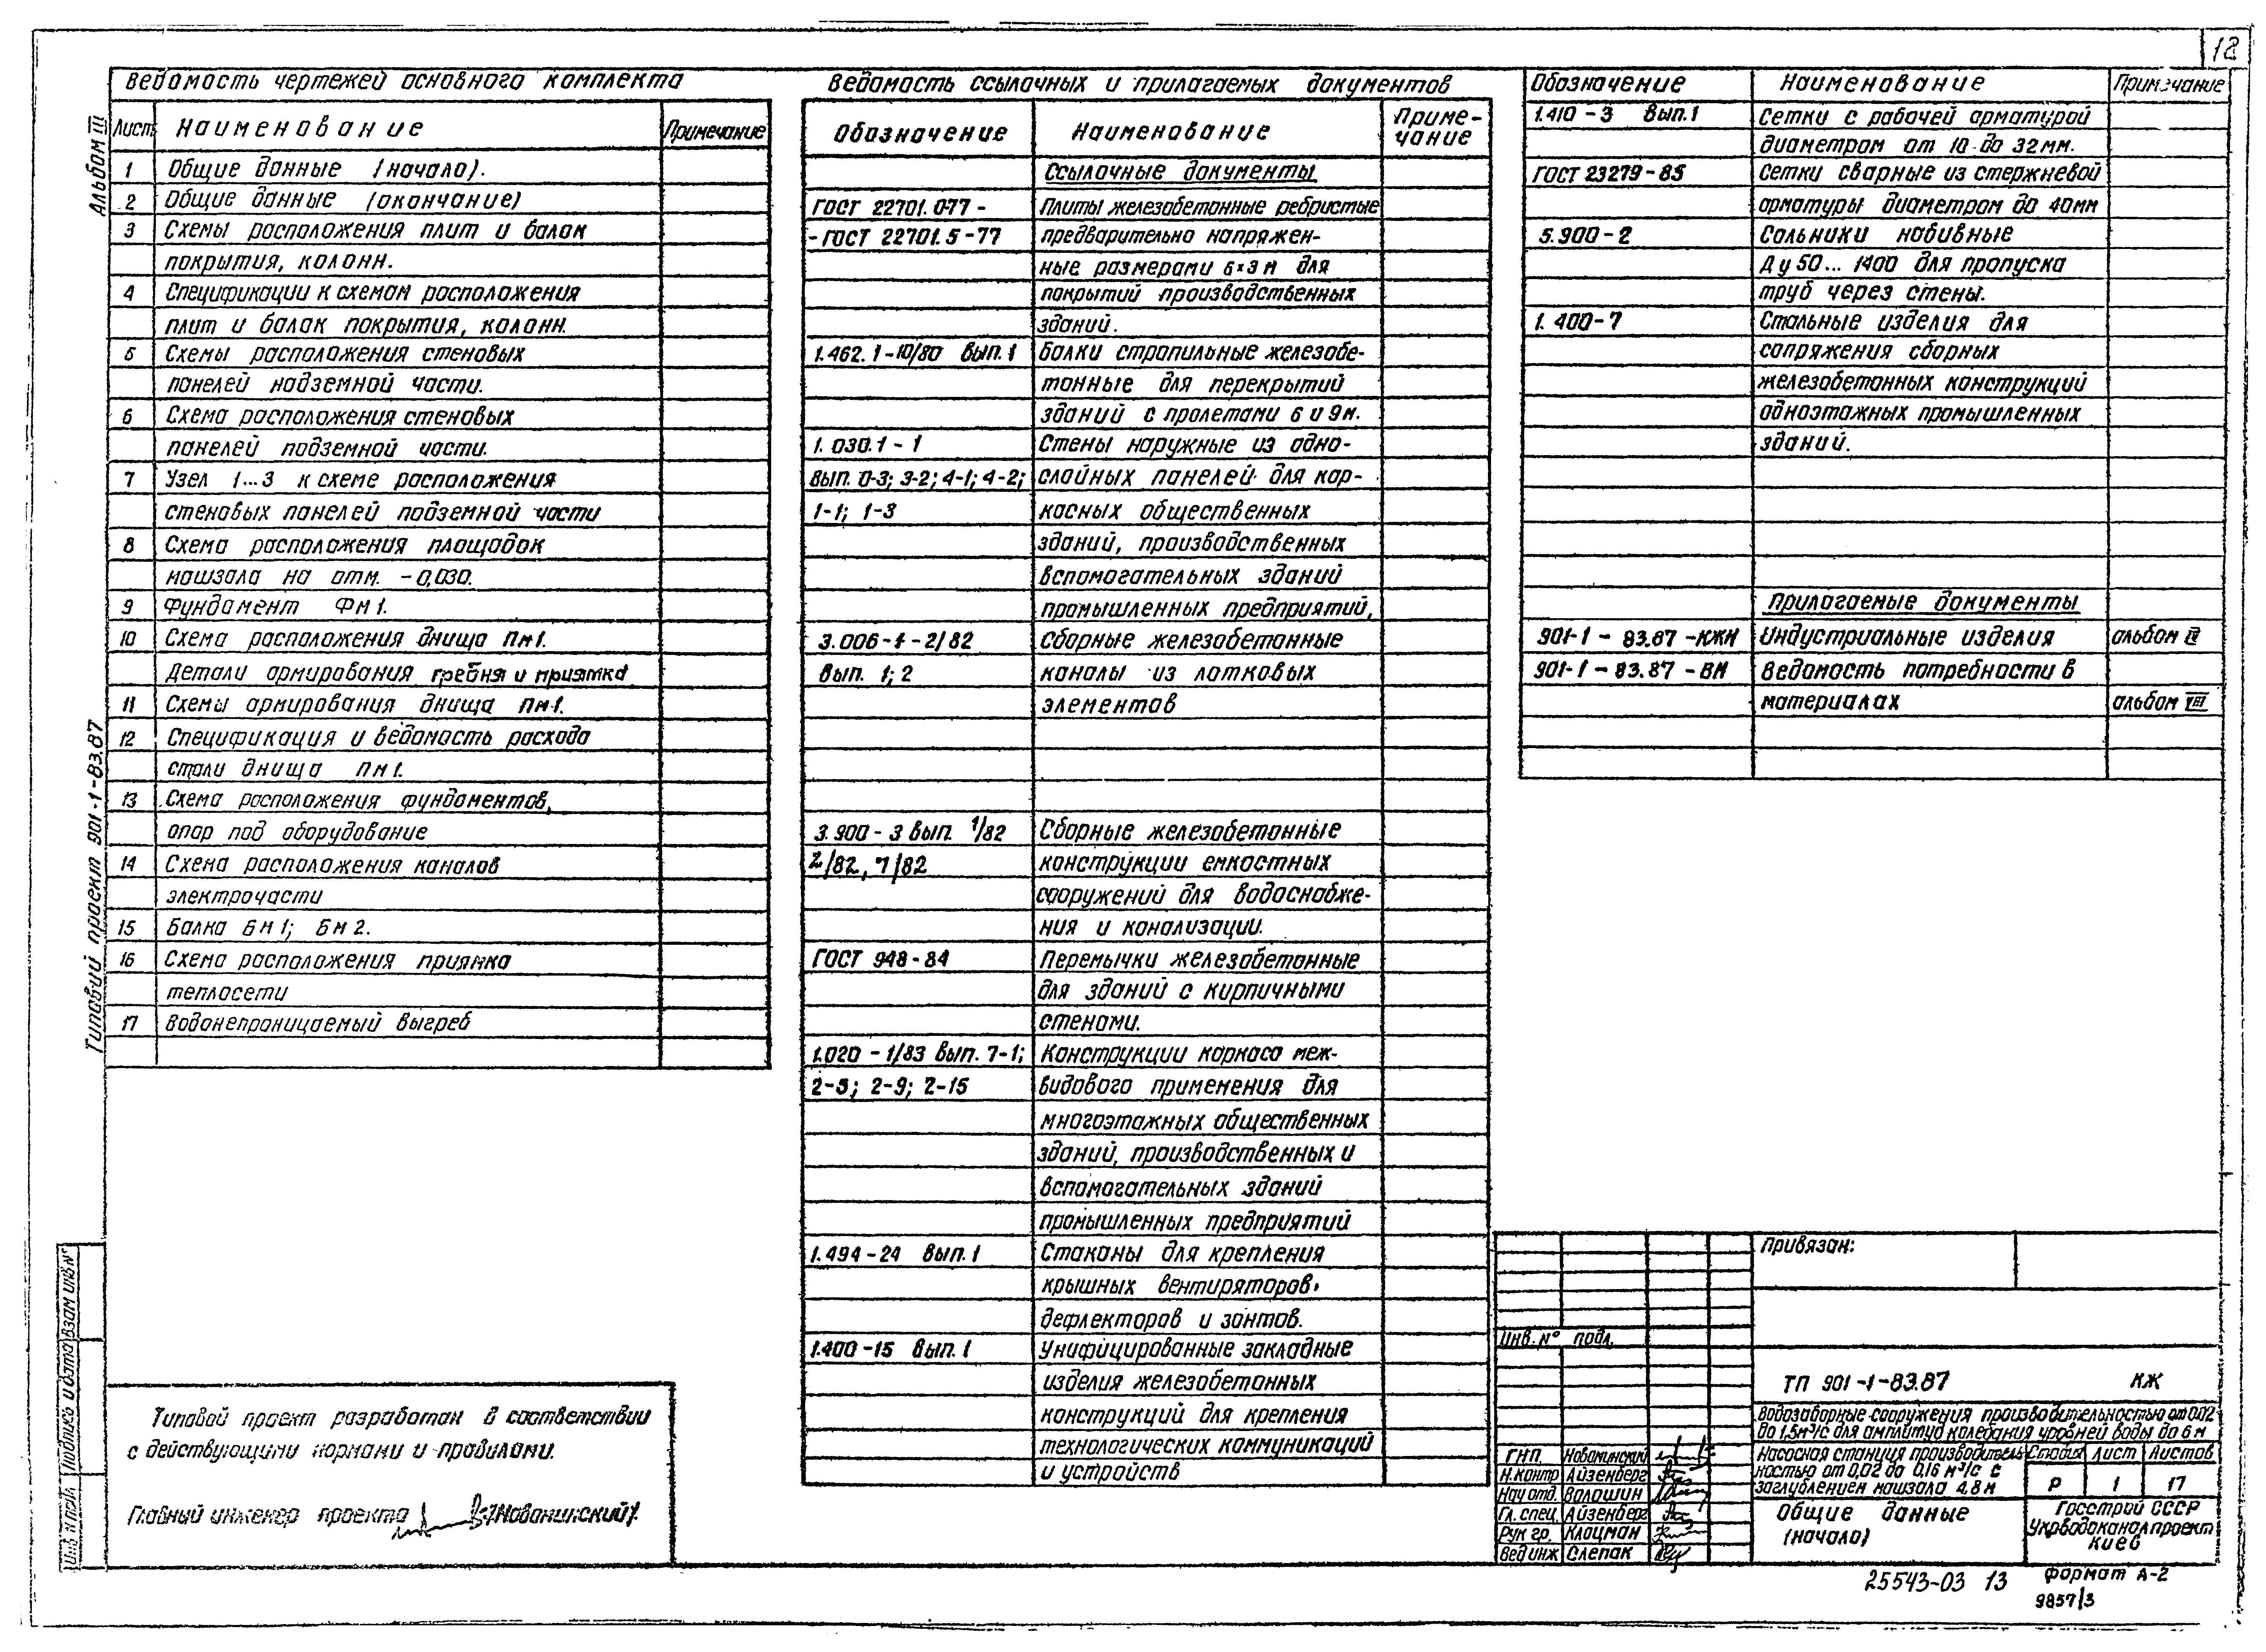 12
Альбом III
Типовий проект 901-1-83.87
Ведомость чертежей основного комплекта
Лист Наименование Примечание
1 Общие данные (начало).
2 Общие данные (окончание)
3 Схемы расположения плит и балок
покрытия, колонн.
4 Спецификации к схемам расположения
плит и балок покрытия, колонн.
5 Схемы расположения стеновых
панелей надземной части.
6 Схема расположения стеновых
панелей подземной части.
7 Узел 1...3 к схеме расположения
стеновых панелей подземной части
8 Схема расположения площадок
машзала на отм. -0,030.
9 Фундамент Фм1.
10 Схема расположения днища Пм1.
Детали армирования гребня и приямка
11 Схемы армирования днища Пм1.
12 Спецификация и ведомость расхода
стали днища Пм1.
13 Схема расположения фундаментов,
опор под оборудование
14 Схема расположения каналов
электрочасти
15 Балка Бм1; Бм2.
16 Схема расположения приямка
теплосети
17 Водонепроницаемый выгреб
Ведомость ссылочных и прилагаемых документов
Обозначение Наименование Приме-
чание
Ссылочные документы
ГОСТ 22701.0-77 - Плиты железобетонные ребристые
- ГОСТ 22701.5-77 предварительно напряжен-
ные размерами 6×3м для
покрытий производственных
зданий.
1.462.1-10/80 вып.1 Балки стропильные железобе-
тонные для перекрытий
зданий с пролетами 6 и 9м.
1.030.1-1 Стены наружные из одно-
вып. 0-3; 3-2; 4-1; 4-2; слойных панелей для кар-
1-1; 1-3 касных общественных
зданий, производственных
вспомогательных зданий
промышленных предприятий,
3.006-1-2/82 Сборные железобетонные
вып. 1; 2 каналы из лотковых
элементов
3.900-3 вып. 1/82 Сборные железобетонные
2/82, 7/82 конструкции емкостных
сооружений для водоснабже-
ния и канализации.
ГОСТ 948-84 Перемычки железобетонные
для зданий с кирпичными
стенами.
1.020-1/83 вып. 7-1; Конструкции каркаса меж-
2-5; 2-9; 2-15 видового применения для
многоэтажных общественных
зданий, производственных и
вспомогательных зданий
промышленных предприятий
1.494-24 вып.1 Стаканы для крепления
крышных вентиряторов,
дефлекторов и зонтов.
1.400-15 вып.1 Унифицированные закладные
изделия железобетонных
конструкций для крепления
технологических коммуникаций
и устройств
Обозначение Наименование Примечание
1.410-3 вып.1 Сетки с рабочей арматурой
диаметром от 10 до 32мм.
ГОСТ 23279-85 Сетки сварные из стержневой
арматуры диаметром до 40мм
5.900-2 Сальники набивные
Ду 50... 1400 для пропуска
труб через стены.
1.400-7 Стальные изделия для
сопряжения сборных
железобетонных конструкций
одноэтажных промышленных
зданий.
Прилагаемые документы
901-1-83.87-КЖИ Индустриальные изделия альбом
901-1-83.87-ВМ Ведомость потребности в
материалах альбом VIII
Типовой проект разработан в соответствии
с действующими нормами и правилами.
Главный инженер проекта /Новоминский/.
Инв. № подл. Подпись и дата Взам. инв. №
Привязан:
Инв. № подл.
ТП 901-1-83.87 КЖ
Водозаборные сооружения производительностью от 0.02
до 1,5м³/с для амплитуд колебания уровней воды до 6м
Насосная станция производитель-
ностью от 0,02 до 0,16 м³/с с
заглублением машзала 4,8м
Стадия Лист Листов
Р 1 17
Общие данные
(начало)
Госстрой СССР
Укрводоканалпроект
Киев
ГИП. Новоминский
Н.контр Айзенберг
Нач отд. Волошин
Гл. спец. Айзенберг
Рук гр. Клоцман
Вед инж Слепак
25543-03 13
формат А-2
9857/3